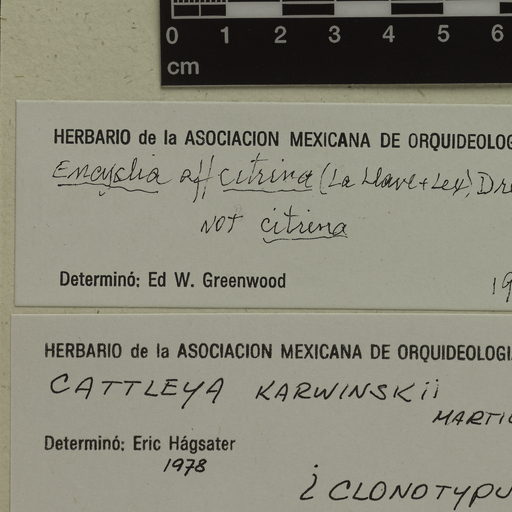 0 1 2 3 4 5 6
cm
HERBARIO de la ASOCIACION MEXICANA DE ORQUIDEOLOG
Encyclia aff citrina (La Llave + Lex) Dre
NOT citrina
Determinó: Ed W. Greenwood 19
HERBARIO de la ASOCIACION MEXICANA DE ORQUIDEOLOGI
CATTLEYA KARWINSKii
MARTIU
Determinó: Eric Hágsater
1978
¿ CLONOTYPU